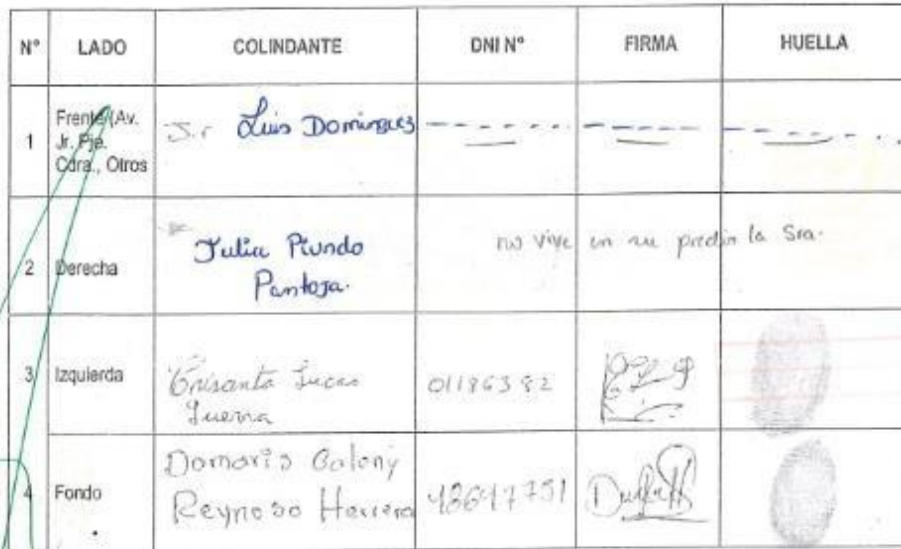 N° LADO COLINDANTE DNI N° FIRMA HUELLA
1 Frente (Av. Jr. Pje. Cdra., Otros Jr Luis Domingues
2 Derecha Julia Piundo Pantoja. no vive en su predio la Sra.
3 Izquierda Crisanto Lucas Guerra 01186382
4 Fondo Damaris Galeny Reynoso Herrera 48647751